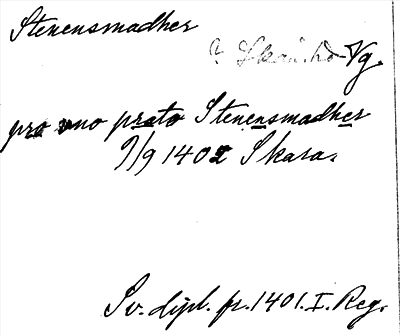 Stenensmadher
? Skån. hd Vg.
pro uno prato Stenensmadher
9/9 1402 Skara.
Sv. dipl. fr. 1401. I. Reg.